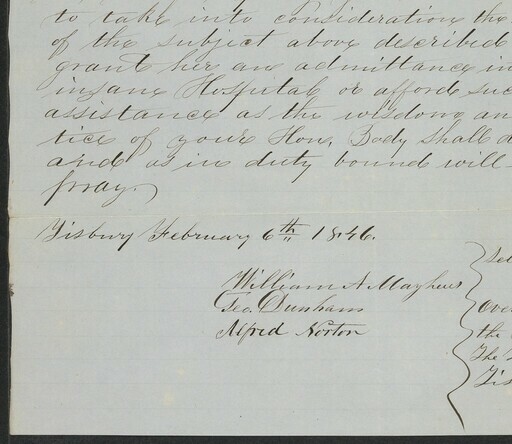 to take into consideration the
of the subject above described
grant her an admittance in
insane Hospital or afford suc
assistance as the wisdom an
tice of your Hon. Body shall d
and as in duty bound will
pray.
Tisbury February 6th 1846.
William A Mayhew
Geo. Dunham
Alfred Norton
Sel
Over
the
The
Tis